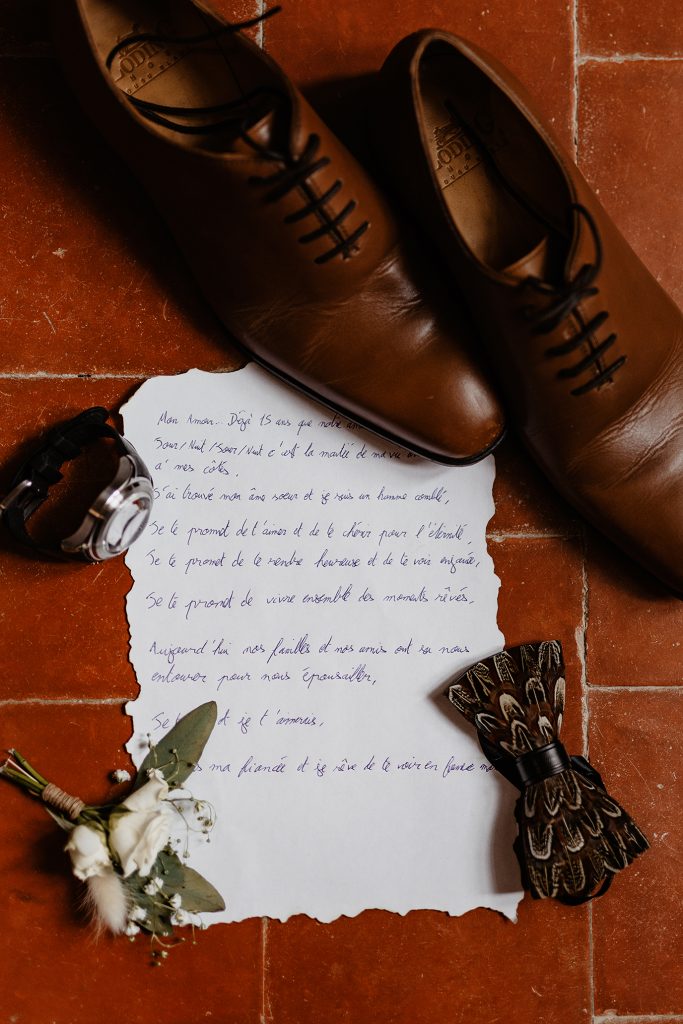 LODING
Mon Amour.. Déjà 15 ans que notre am
Jour/Nuit/Jour/Nuit c'est la moitié de ma vie
a' mes côtés.
J'ai trouvé mon âme sœur et je suis un homme comblé,
Je te promet de t'aimer et de te chérir pour l'éternité,
Je te promet de te rendre heureuse et de te voir
Je te promet de vivre ensemble des moments rêvés,
Aujourd'hui nos familles et nos amis ont su nous
entourer pour nous épousailler,
Je t et je t'aimerais,
s ma fiancée et je rêve de te voir en
LODING